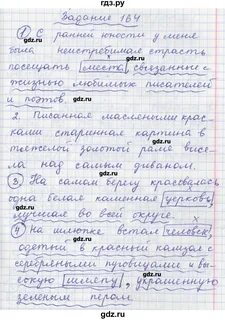 Задание 164
1) С ранней юности у меня
была неистребимая страсть
посещать места, связанные с
жизнью любимых писателей
и поэтов.
2. Писанная масляными крас-
ками старинная картина в
тяжелой золотой раме висе-
ла над самым диваном.
3) На самом берегу красовалась
одна белая каменная церковь,
лучшая во всей округе.
4) На шлюпке встал человек,
одетый в красный камзол с
серебряными пуговицами и вы-
сокую шляпу, украшенную
зеленым пером.